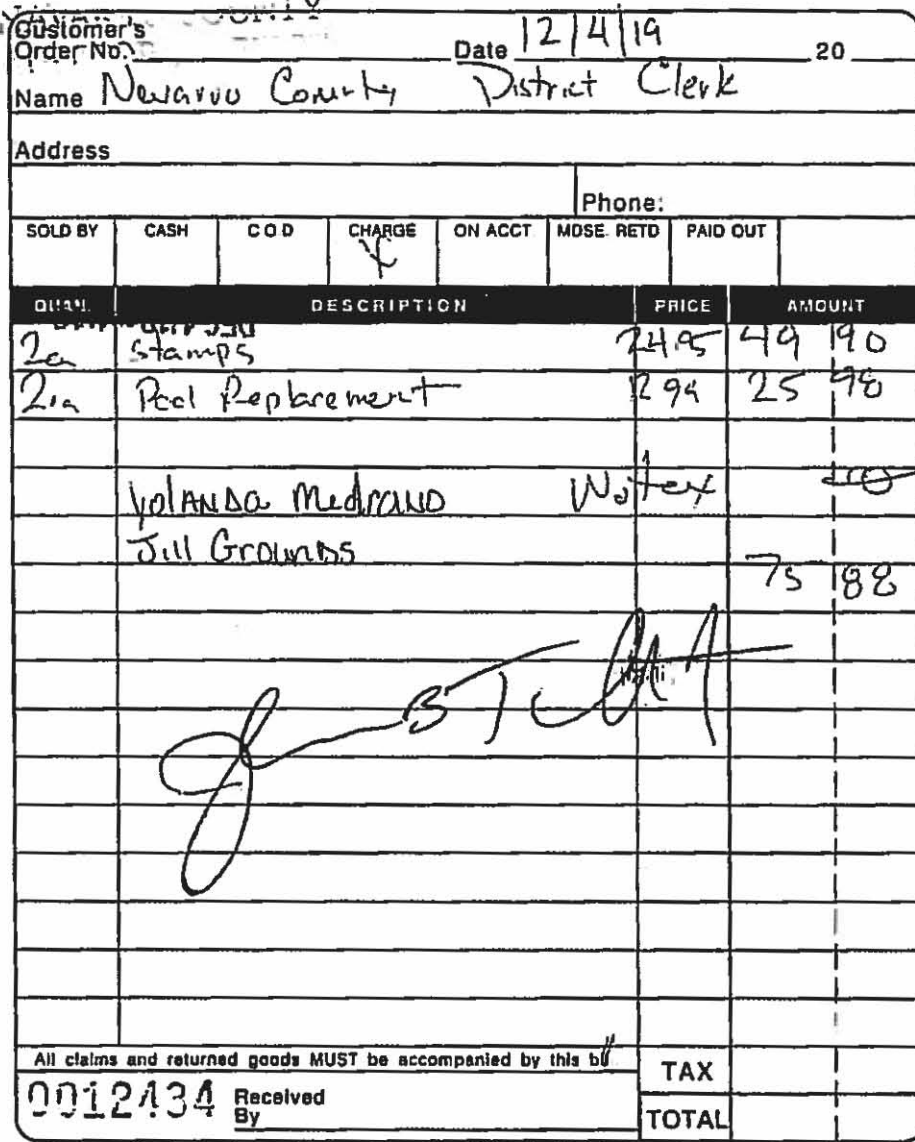 Customer's
Order No.
Date 12/4/19 20
Name Navarro County District Clerk
Address
Phone:
SOLD BY CASH C O D CHARGE ON ACCT. MDSE. RETD PAID OUT
X
QUAN. DESCRIPTION PRICE AMOUNT
2ea stamps 24.95 49 90
2ea Pad Replacement 12 99 25 98
Yolanda Medrano
Jill Grounds
75 88
All claims and returned goods MUST be accompanied by this bill
TAX
0012434 Received
By
TOTAL